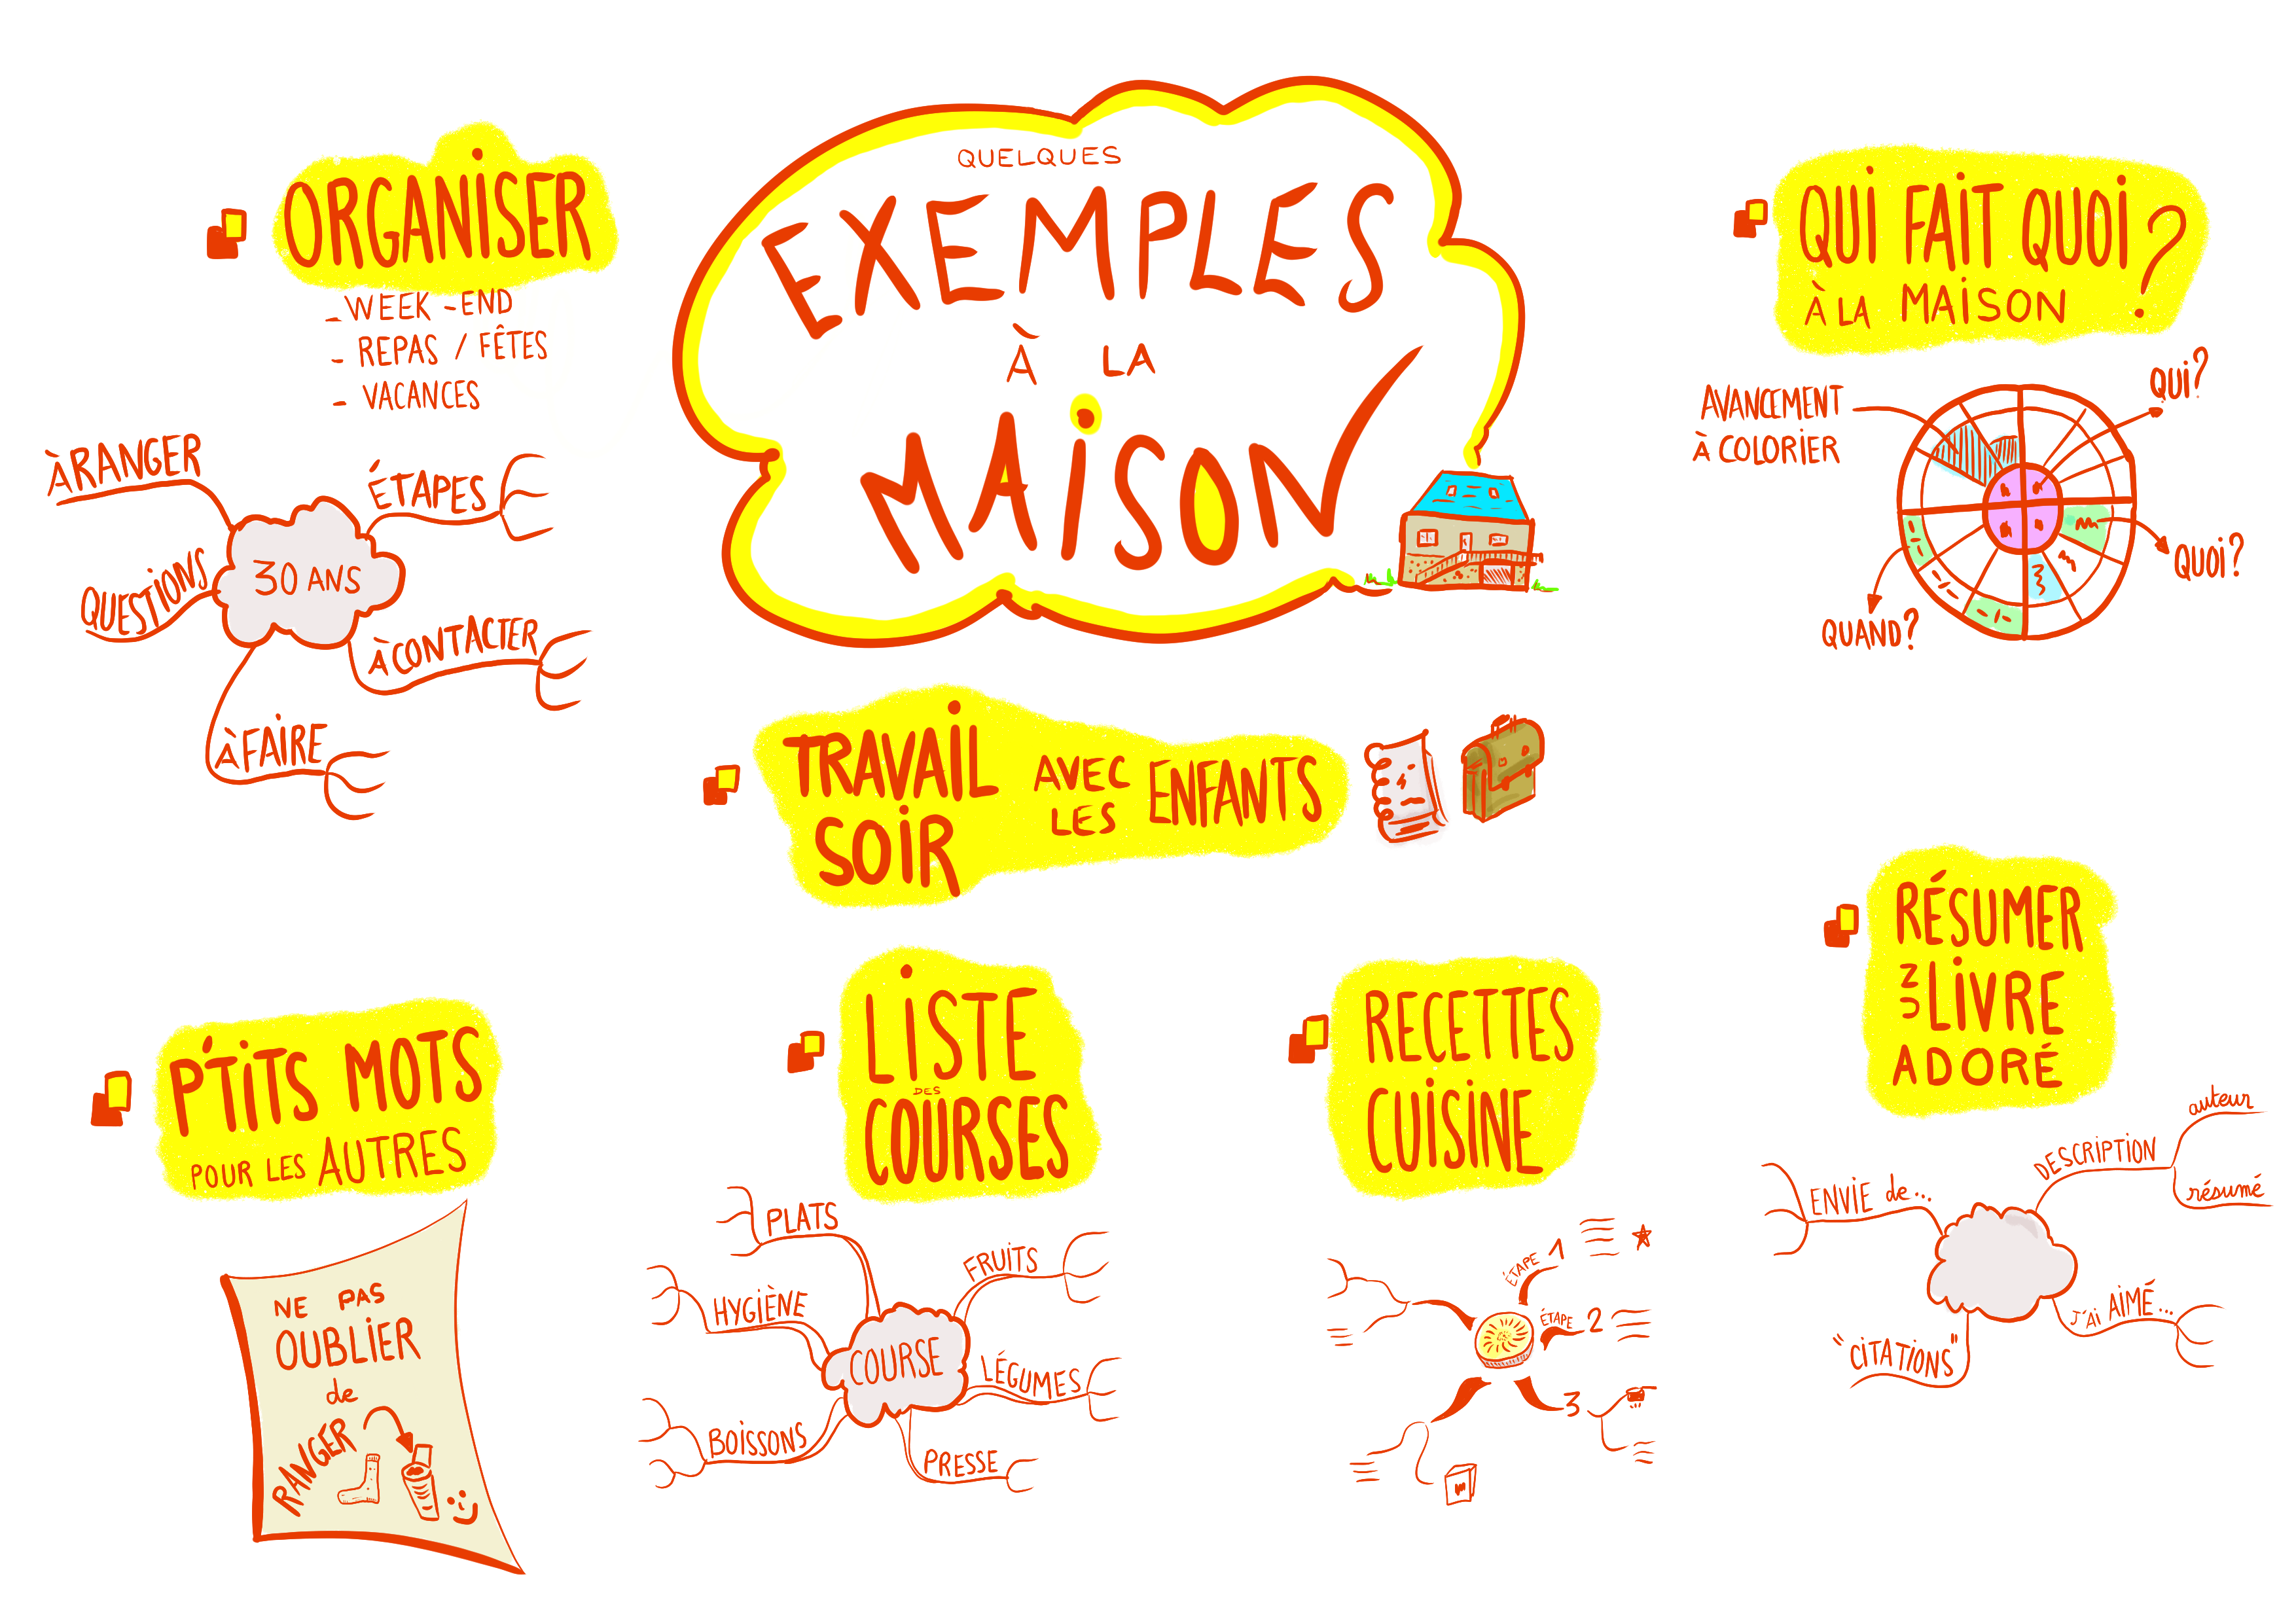 QUELQUES
EXEMPLES
À LA
MAISON
ORGANISER
- WEEK-END
- REPAS / FÊTES
- VACANCES
À RANGER
ÉTAPES
QUESTIONS
30 ANS
À CONTACTER
À FAIRE
QUI FAIT QUOI ?
À LA MAISON
AVANCEMENT
À COLORIER
QUI?
QUOI?
QUAND?
TRAVAIL
SOIR
AVEC
LES
ENFANTS
P'TITS MOTS
POUR LES AUTRES
NE PAS
OUBLIER
de
RANGER
LISTE
DES
COURSES
PLATS
FRUITS
HYGIÈNE
COURSE
LÉGUMES
BOISSONS
PRESSE
RECETTES
CUISINE
ÉTAPE 1
ÉTAPE 2
3
RÉSUMER
UN LIVRE
ADORÉ
auteur
DESCRIPTION
résumé
ENVIE de...
J'AI AIMÉ...
"CITATIONS"